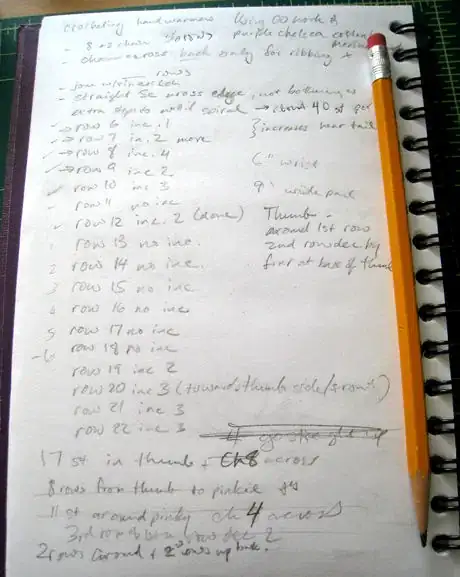 crocheting handwarmers Using OO hook &
8 sc chain purple chelsea
- chain across back only for ribbing x
rows
- straight sc across edge, not bothering w
extra stitches until spiral → about 40 st per
✓ → row 6 inc. 1 } increases near tail
✓ → row 7 in. 2 more
✓ → row 8 inc. 4
✓ → row 9 inc 2 6" wrist
✓ row 10 inc 3 9" wide palm
row 11 no inc
row 12 inc. 2 (done) Thumb -
1 row 13 no inc. around 1st row
2 row 14 no inc. 2nd row dec by
3 row 15 no inc four at base of thumb
4 row 16 no inc
5 row 17 no inc
-6 row 18 no inc
row 19 inc 2
row 20 inc 3 (towards thumb side
row 21 inc 3
row 22 inc 3
17 st in thumb + ch 8 across
8 rows from thumb to pinkie
11 st around pinky ch 4 across
3rd row dec 2
2 rows around + 2 rows up back.